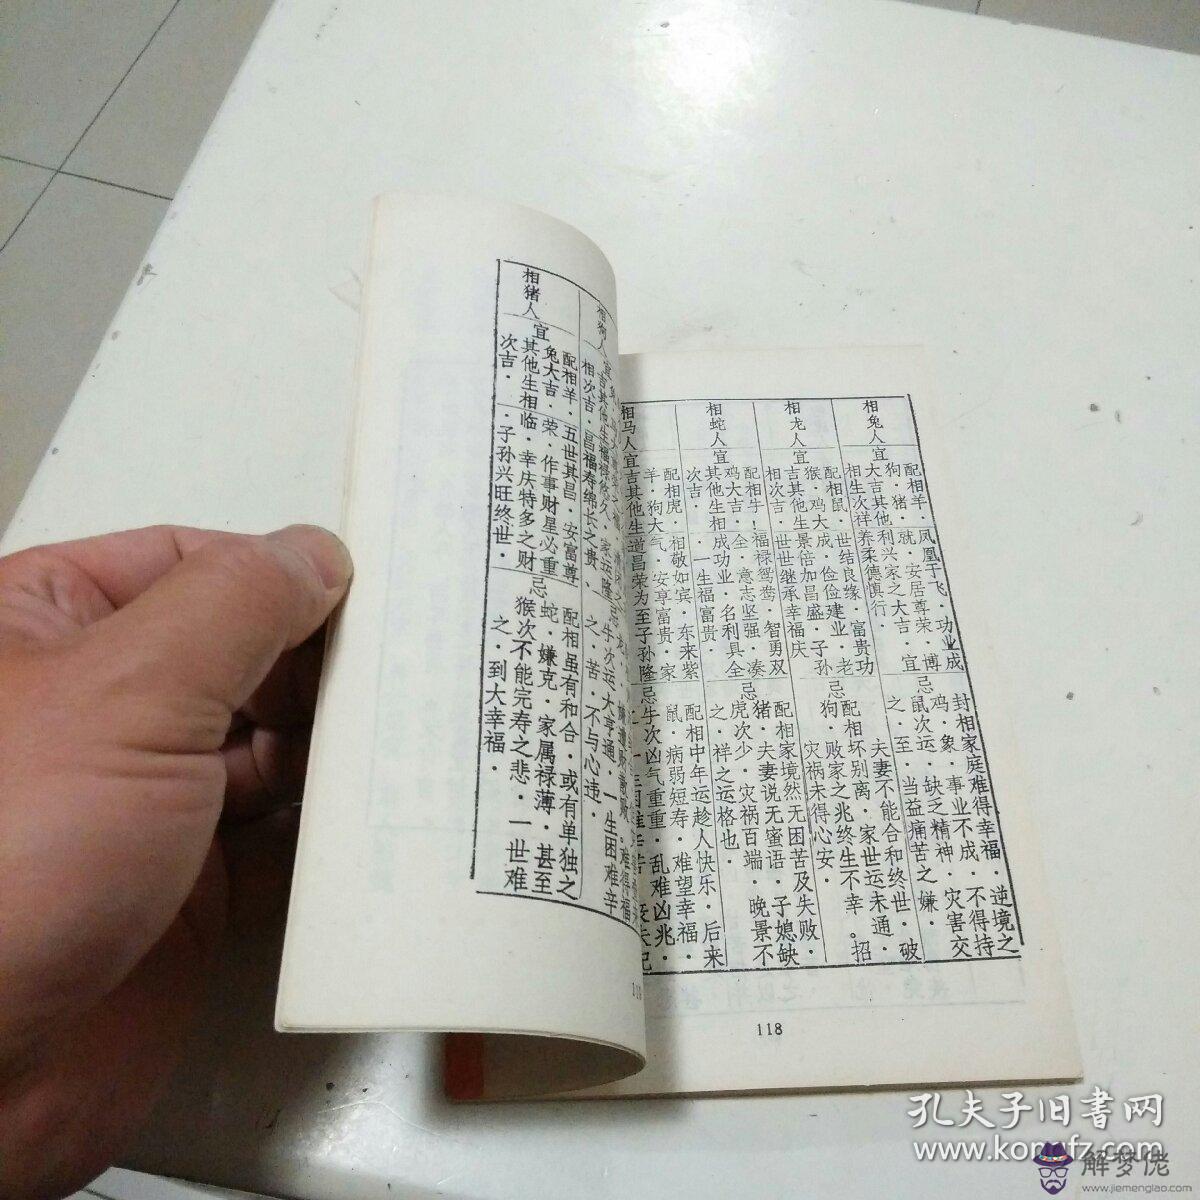 相兔人
配相羊·
狗·猪·
宜大吉其他
相生次祥
凤凰于飞·功业成
就·安居尊荣·博
利兴家之大吉·宜
养柔德慎行·
封相家庭难得幸福·逆境之
鸡·象·事业不成·不得持
忌鼠次运·缺乏精神·灾害交
之·至·当益痛苦之嫌·
相龙人
配相鼠·
猴·鸡大
宜吉其他生
相次吉·
世结良缘·富贵功
成·俭俭建业·老
景倍加昌盛·子孙
世世继承幸福庆
夫妻不能合和终世·破
配相坏别离·家世运未通·
忌狗·败家之兆终生不幸。招
灾祸未得心安·
相蛇人
配相牛!
鸡大吉·
宜其他生相
次吉·
福禄鸳鸯·智勇双
全·意志坚强·凑
成功业·名利具全
·一生福富贵·
配相家境然无困苦及失败·
猪·夫妻说无蜜语·子媳缺
忌虎次少·灾祸百端·晚景不
之·祥之运格也·
相马人
配相虎·
羊·狗大
宜吉其他生
相敬如宾·东来紫
气·安亨富贵·家
道昌荣为至子孙隆
配相中年运趁人快乐·后来
鼠·病弱短寿·难望幸福·
忌牛次凶气重重·乱难凶兆·
118
相狗人
宜
吉其他生
相次吉·
福祥悠久·家运隆
昌福寿绵长之贵·
难得福
牛次运大亨通·一生困难辛
之·苦·不与心违·
相猪人
配相羊·
兔大吉·
宜其他生相
次吉·
五世其昌·安富尊
荣·作事财星必重
临·幸庆特多之财
·子孙兴旺终世·
配相虽有和合·或有单独之
忌蛇·嫌克·家属禄薄·甚至
猴次不能完寿之悲·一世难
之·到大幸福·
孔夫子旧书网
www.kongfz.com
解梦佬
www.jiemenglao.com